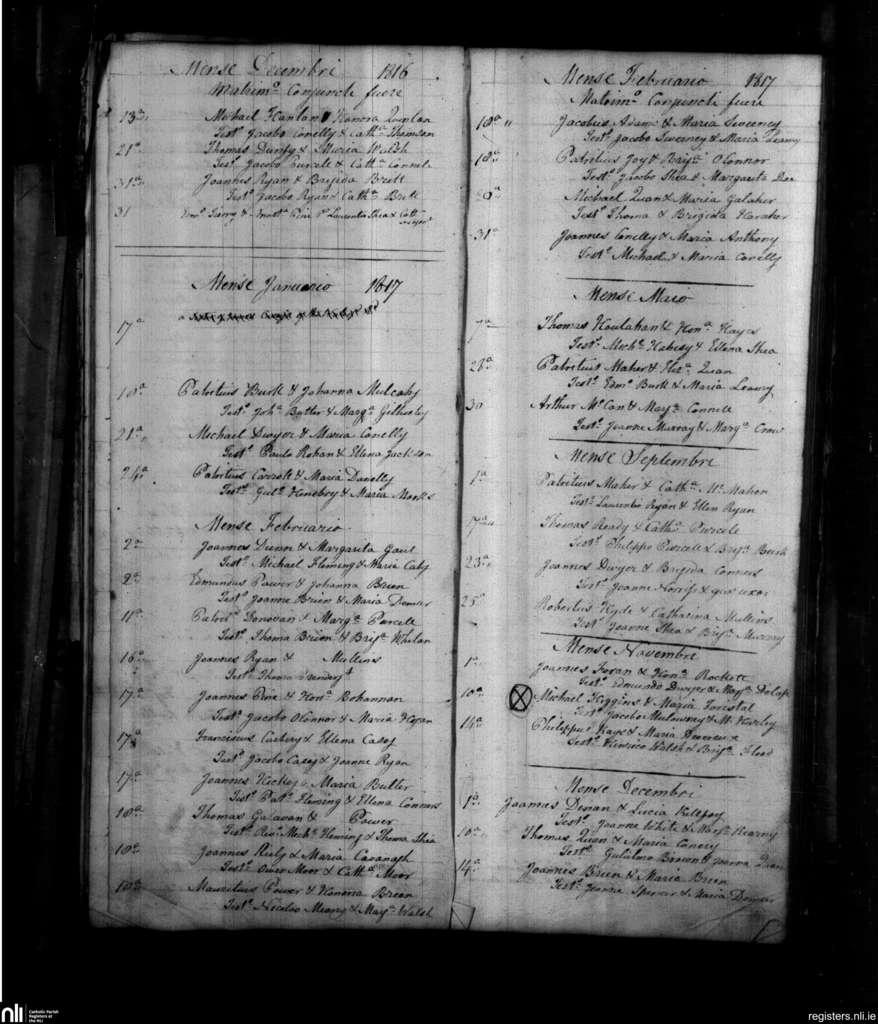 Mense Decembri 1816
Matrimo. Conjuncti fuere
13a. Michael Hanlan & Honora Quinlan
Testo. Jacobo Conelly & Catha. Thomson
21a. Thomas Dunfy & Maria Walsh
Testo. Jacobo Purcell & Catha.
31a. Joannes Ryan & Brigida Brett
Testo. Jacobo Ryan & Catha. Brett
31 Laurentio Shea & Cath.
Mense Januario 1817
17a
18a Patritius Burk & Johanna Mulcahy
Testo. Joh. Butler & Marga.
21a. Michael Dwyer & Maria Conelly
Testo. Paulo Rohan & Ellena Jackson
24a. Patritius Carroll & Maria Danelly
Testo. Gulo. Henebry & Maria
Mense Februario
2a. Joannes Dunn & Margarita Gaul
Testo. Michael Fleming & Maria Cahy
2a. Edmundus Power & Johanna Brien
Testo. Joanne Brien & Maria
11a. Patrits. Donovan & Marga. Purcell
Testo. Thoma Brien & Briga. Whelan
16a. Joannes Ryan & Mullins
Testo. Thoma
17a. Joannes & Hona. Bohannan
Testo. Jacobo OConnor & Maria Hogan
17a Franciscus & Ellena Casey
Testo. Jacobo Casey & Joanne Ryan
17a Joannes Hickey & Maria Butler
Testo. Pato. Fleming & Ellena Connors
18a. Thomas Galavan & Power
Testo. Revo. Micho. Fleming & Thoma Shea
18a. Joannes Riely & Maria Cavanagh
Testo. Owen Moor & Catha. Moor
18a. Mauritius Power & Honora Brien
Testo. Nicolao Meany & Marya. Walsh
Mense Februario 1817
Matrimo. Conjuncti fuere
18a Jacobus Adams & Maria Sweeney
Testo. Jacobo Sweeney & Maria Leamy
18a. Patritius Joy & Briga. OConnor
Testo. Jacobo Shea & Margarita
Michael Quan & Maria Galaher
Testo. Thoma & Brigida
31a. Joannes Conelly & Maria Anthony
Testo. Michael & Maria Conelly
Mense Maio
7a Thomas Houlahan & Hona. Hayes
Testo. Micho. & Ellena Shea
Patritius Maher & Quan
Testo. Edmo. Burk & Maria Leamy
30 Arthur McCan & Marya. Connell
Testo. Joanne Murray & Marga.
Mense Septembri
1a Patritius Maher & Catha. McMahon
Testo. Laurentio Ryan & Ellen Ryan
17a Thomas Ready & Catha. Purcele
Testo. Philippo Purcell & Briga. Burk
23a. Joannes Dwyer & Brigida Conners
Testo. Joanne Norriss & ejus uxor
25a Robertus Hyde & Catharina Mullins
Testo. Joanne Shea & Briga. Murray
Mense Novembri
1a. Joannes Foran & Hona. Rockett
Testo. Edmundo Dwyer & Marya.
10a. Michael Higgins & Maria Forristal
Testo. Jacobo Mulowney & M. Hurley
14a Philippus Hays & Maria Devereux
Testo. Henrico Walsh & Briga. Flood
Mense Decembri
1a. Joannes & Lucia Kilfoy
Testo. Joanne White & Marga. Kearny
10a. Thomas Quan & Maria Conery
Testo. Gulielmo Brown & Joanna Quan
14a Joannes Brien & Maria Brien
Testo. Joanne Spencer & Maria
nli
Catholic Parish
Registers at
the NLI
registers.nli.ie